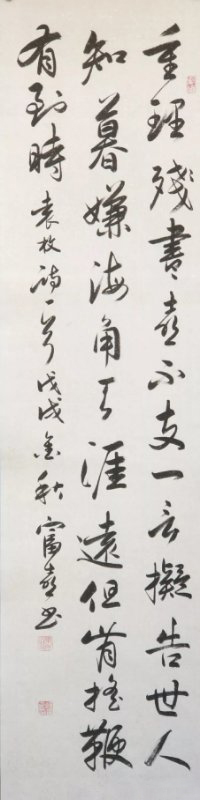 重理殘書喜不支一言擬告世人
知暮嫌海角天涯遠但肯搖鞭
有到時 袁枚詩一首 戊戌金秋 富喜书